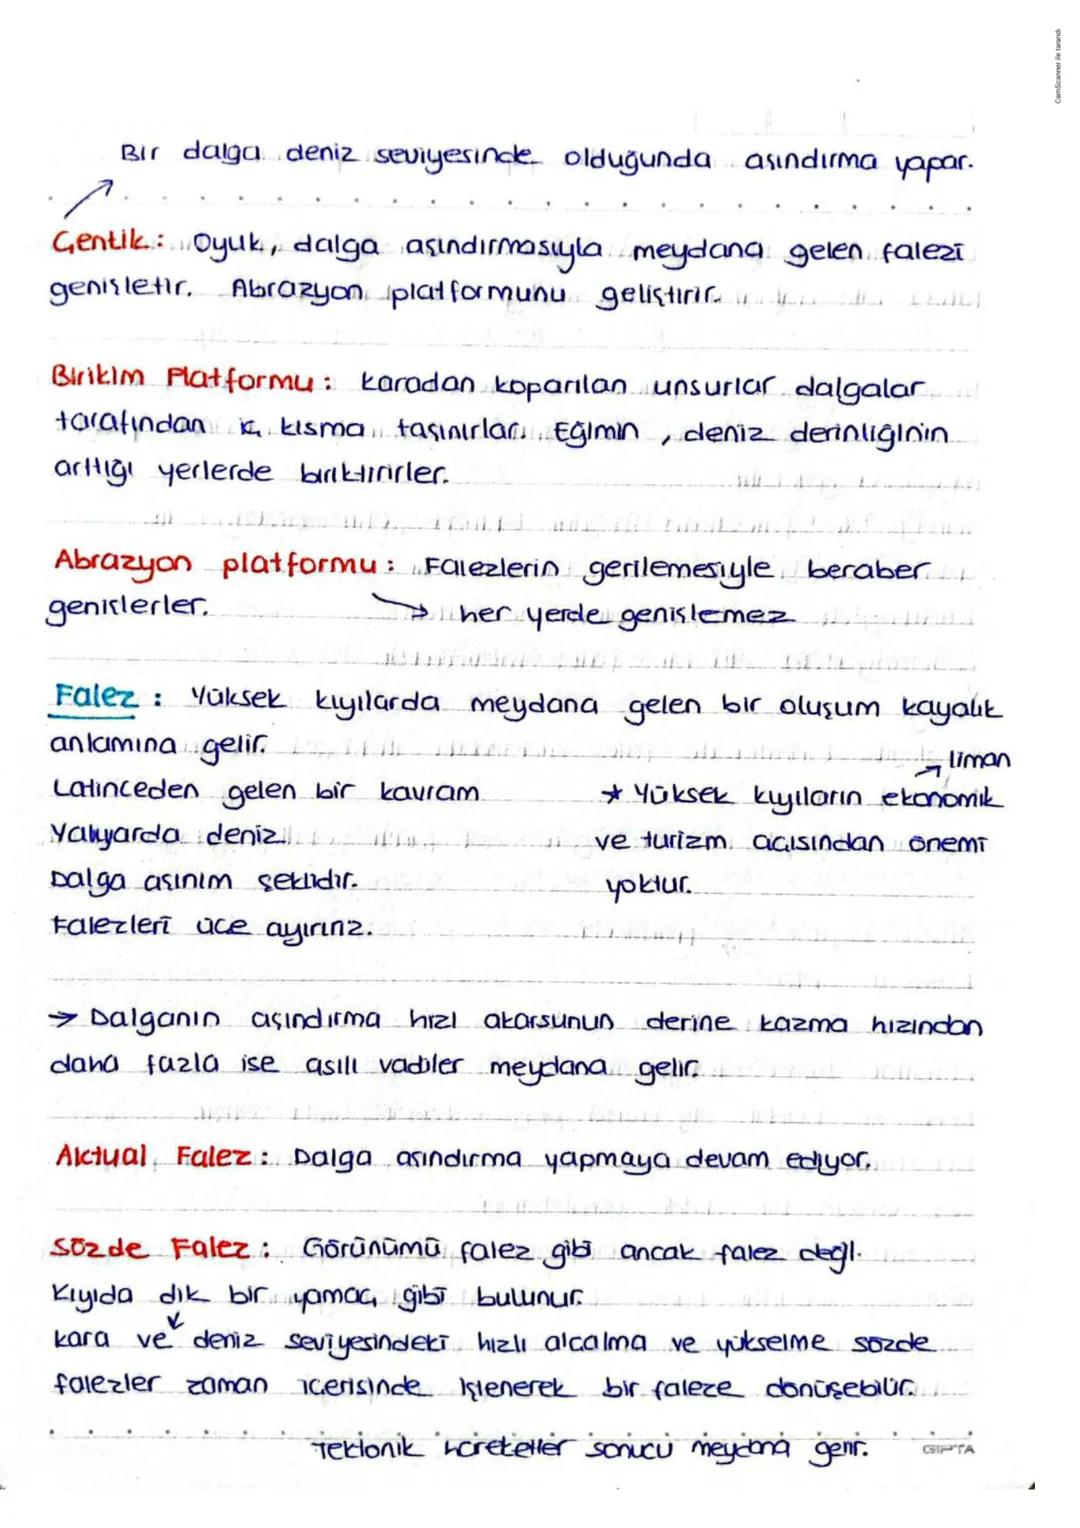 CamScanner ile tarandı
Bir dalga deniz seviyesinde olduğunda aşındırma yapar.
Çentik: Oyuk, dalga aşındırmasıyla meydana gelen falezi
genişletir. Abrazyon platformunu geliştirir.
Birikim Platformu: karadan koparılan unsurlar dalgalar
tarafından iç kısma taşınırlar. Eğimin, deniz derinliğinin
arttığı yerlerde biriktirirler.
Abrazyon platformu: Falezlerin gerilemesiyle beraber
genişlerler. → her yerde genişlemez
Falez: Yüksek kıyılarda meydana gelen bir oluşum kayalık
anlamına gelir.
Latinceden gelen bir kavram
Yalıyarda deniz
Dalga aşınım şeklidir.
Falezleri üçe ayırırız.
liman
* Yüksek kıyıların ekonomik
ve turizm açısından önemi
yoktur.
→ Dalganın aşındırma hızı akarsunun derine kazma hızından
daha fazla ise asılı vadiler meydana gelir.
Aktual Falez: Dalga aşındırma yapmaya devam ediyor.
Sözde Falez: Görünümü falez gibi ancak falez değil.
Kıyıda dik bir yamaç gibi bulunur.
kara ve deniz seviyesindeki hızlı alçalma ve yükselme sözde
falezler zaman içerisinde işlenerek bir faleze dönüşebilir.
Tektonik hareketler sonucu meydana gelir.
GIPTA